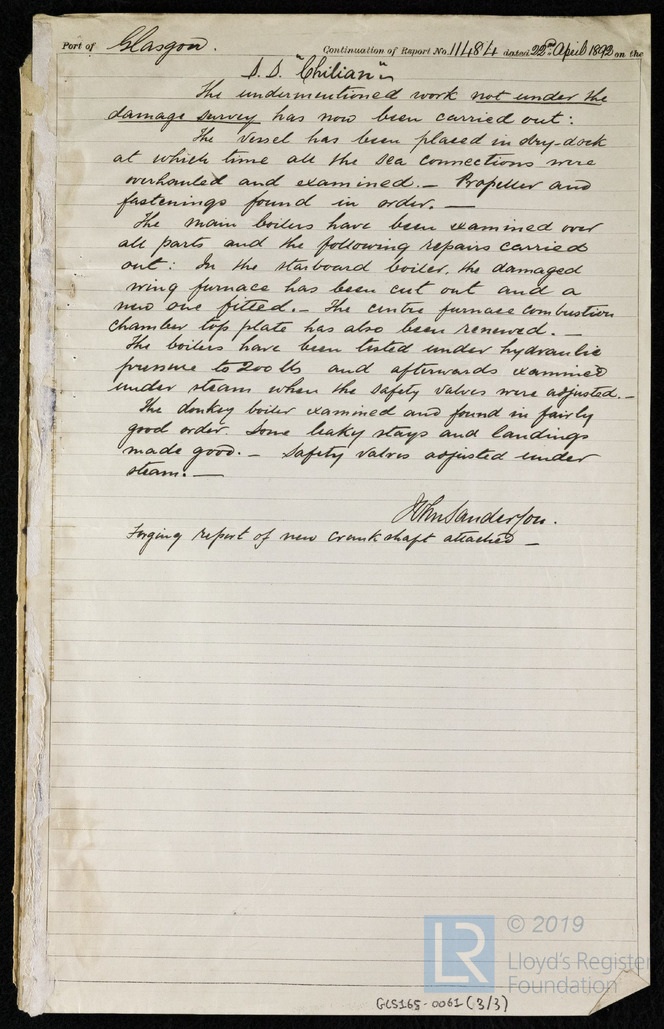 Port of Glasgow. Continuation of Report No. 11484 dated 22nd April 1892 on the
S.S. "Chilian"
The undermentioned work not under the
damage survey has now been carried out:
The vessel has been placed in dry-dock
at which time all the sea connections were
overhauled and examined. — Propeller and
fastenings found in order. —
The main boilers have been examined over
all parts and the following repairs carried
out: In the starboard boiler, the damaged
wing furnace has been cut out and a
new one fitted. — The centre furnace combustion
chamber top plate has also been renewed. —
The boilers have been tested under hydraulic
pressure to 200 lbs and afterwards examined
under steam when the safety valves were adjusted. —
The donkey boiler examined and found in fairly
good order. Some leaky stays and landings
made good. — Safety valves adjusted under
steam. —
John Sanderson.
Forging report of new crank shaft attached —
LR
© 2019
Lloyd's Register
Foundation
GLS165-0061 (3/3)